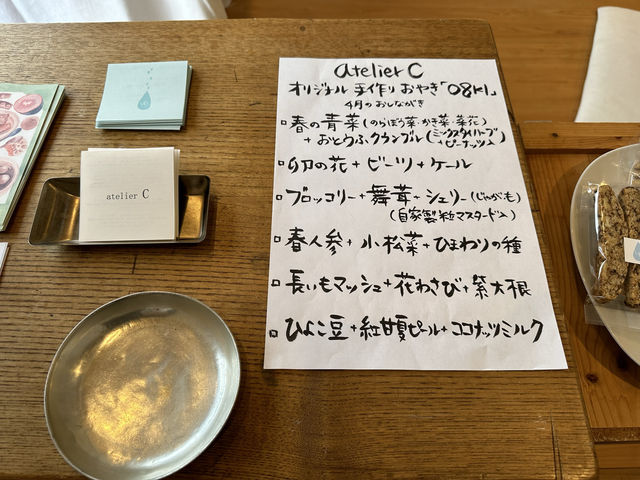 atelier C
atelier C
オリジナル 手作り おやき「08KI」
4月のおしながき
春の青菜(のらぼう菜・かき菜・菜花)
+おとうふクランブル(ミックスタイハーブ+ピーナッツ入)
卯の花+ビーツ+ケール
ブロッコリー+舞茸+シェリー(じゃがも)
(自家製粒マスタード入)
春人参+小松菜+ひまわりの種
長いもマッシュ+花わさび+紫大根
ひよこ豆+紅甘夏ピール+ココナッツミルク